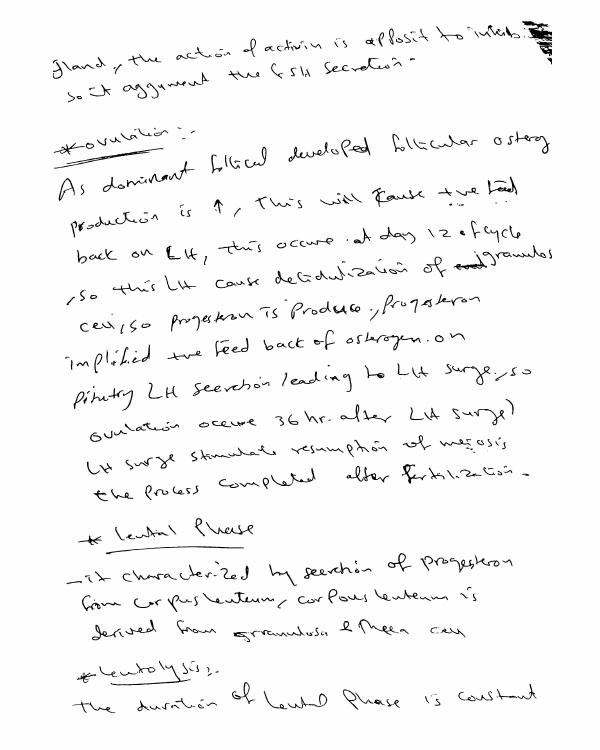 gland, the action of activin is apposit to inhib
so it aggument the FSH secretion.
* ovulation :-
As dominant follical developed follicular osterog
production is ↑, This will cause +ve feed
back on LH, this occure at day 12 of cycle
, so this LH cause decidulization of granulos
cell, so progesteron is Produce, Progesteron
implified +ve feed back of osterogen on
Pitutry LH secretion leading to LH surge, so
ovulation occure 36 hr. after LH surge)
LH surge stimulate resumption of meiosis
the process completed after fertilization.
* leutal Phase
- it characterized by secretion of progesteron
from corpus leuteum, corpous leuteum is
derived from granulosa & theca cell
* leutolysis :.
the duration of leutal Phase is constant